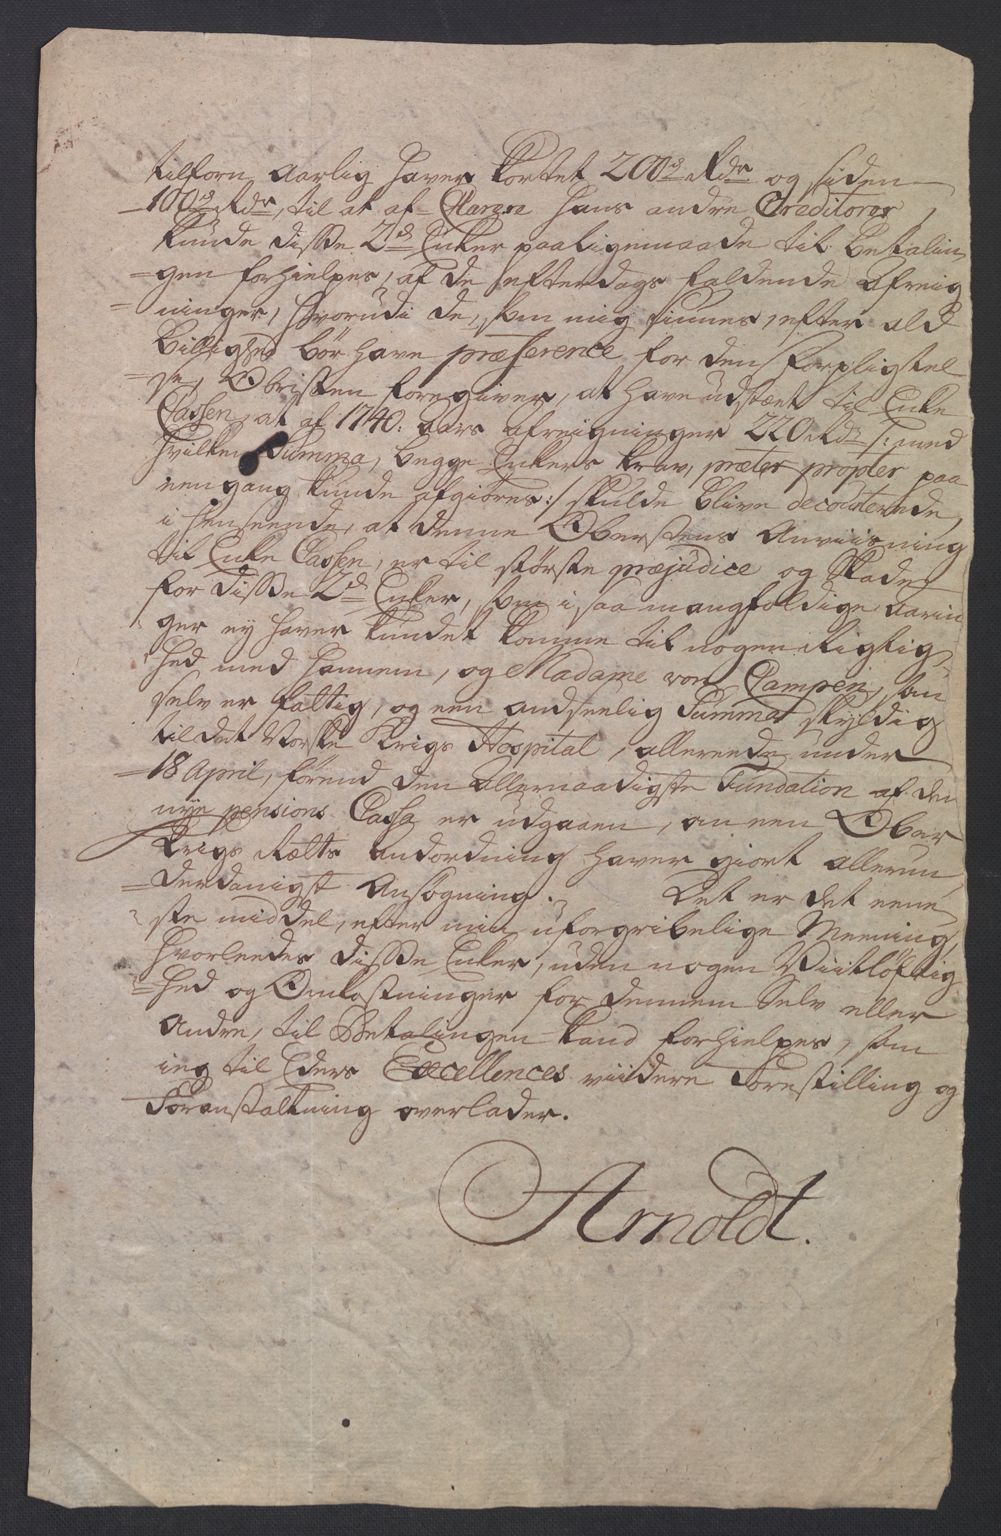 tilforn Aarlig haver kortet 200de Rdr og siden
100de Rdr, til at af Claren hans andre Creditorer,
kunde disse 2de Enker paa ligemaade til betalin-
gen forhielpes, af de efterdags faldende Afreig-
ninger, hvorudi de, som mig siunes, efter ald
billighed bör have præference for den forpligtel-
se, Obristen foregiver, at have udstædt til Enke
Classen, at af 1740: aars Afreigninger 220 Rdr /: med
hvilken Summa, begge Enkers krav, præter propter paa
een gang kunde afgiöres :/ skulde blive decourterede,
i henseende, at denne Oberstens Anviisning
til Enke Classen, er til störste præjudice og Skade
for disse 2de Enker, som i saa mangfoldige aarin-
ger ey haver kundet komme til nogen Rigtig-
hed med hannem, og Madame von Campen, som
selv er fattig, og een andseelig Summa skyldig
til det Norske Krigs Hospital, allereede under
18 April, förend den Allernaadigste Fundation af den
nye pensions Cassa er udgaaen, an een Ober
Krigs Rætts andordning haver giort allerun-
derdanigst Ansögning. Det er det eene-
ste middel, efter min uforgribelige Meening,
hvorleedes disse Enker, uden nogen Viitlöftig-
hed og Omkostninger for dennem Selv eller
Andre, til Betalingen kand forhielpes, som
ieg til Eders Excellences viidere Forestilling og
Foranstaltning overlader.
Arnoldt.